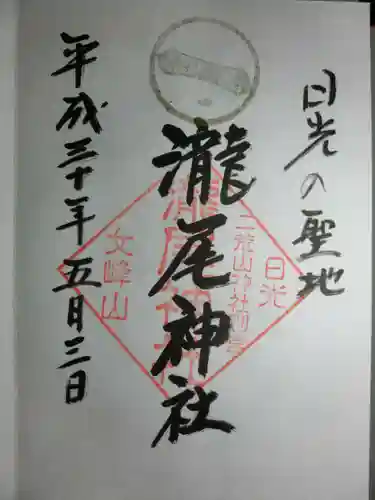 日光の聖地
瀧尾神社
平成三十年五月三日
日光
二荒山神社別宮
瀧尾神社
文峰山